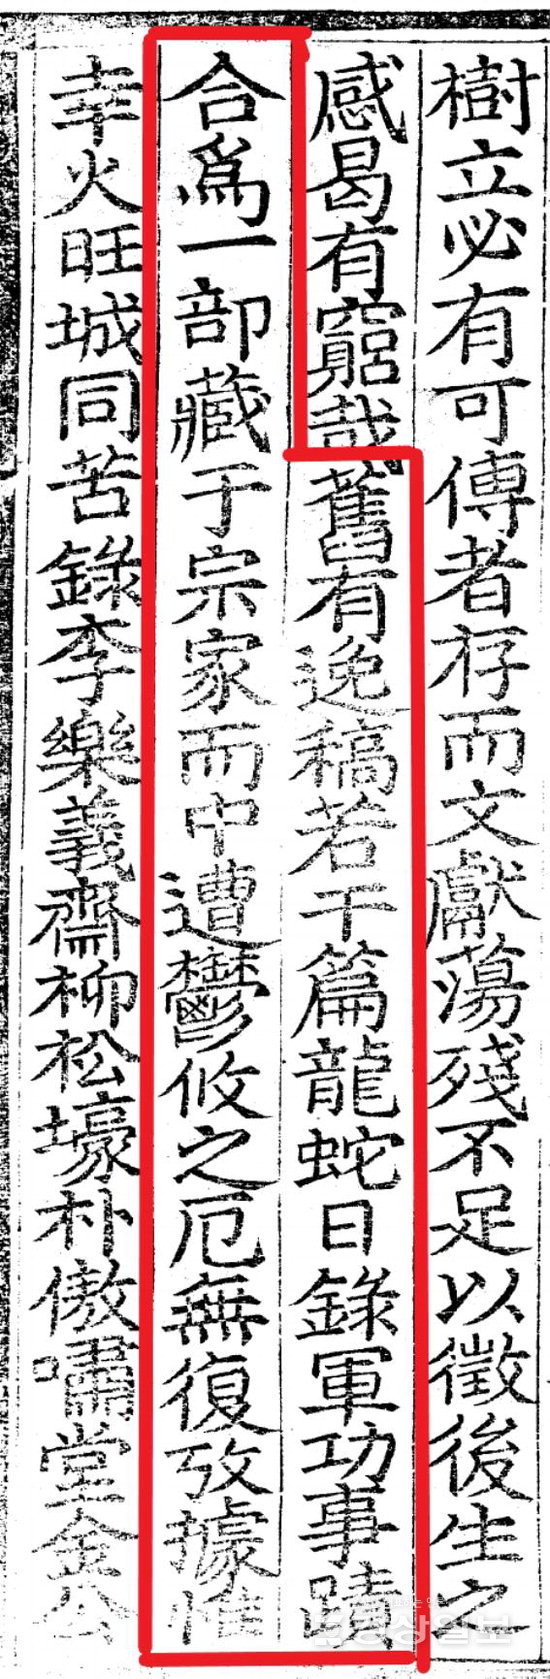 樹立必有可傳者存而文獻蕩殘不足以徵後生之
感曷有窮哉舊有逸稿若干篇龍蛇日錄軍功事蹟
合爲一部藏于宗家而中遭鬱攸之厄無復攷據惟
幸火旺城同苦錄李樂義齋柳松壕朴傲嘯堂金公
경상일보